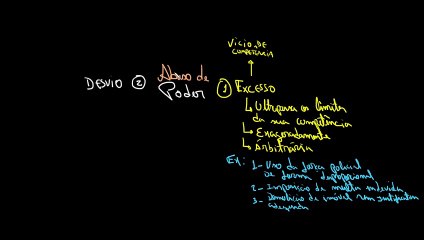 VICIO DE
COMPETENCIA
DESVIO ② Abuso de Poder ① EXCESSO
↳ Ultrapassa os limites
da sua competência
↳ Exageradamente
↳ Arbitrária
Ex: 1- Uso da força policial
de forma desproporcional
2- Imposição de multa indevida
3- Demolição de imóvel sem justificativa
adequada